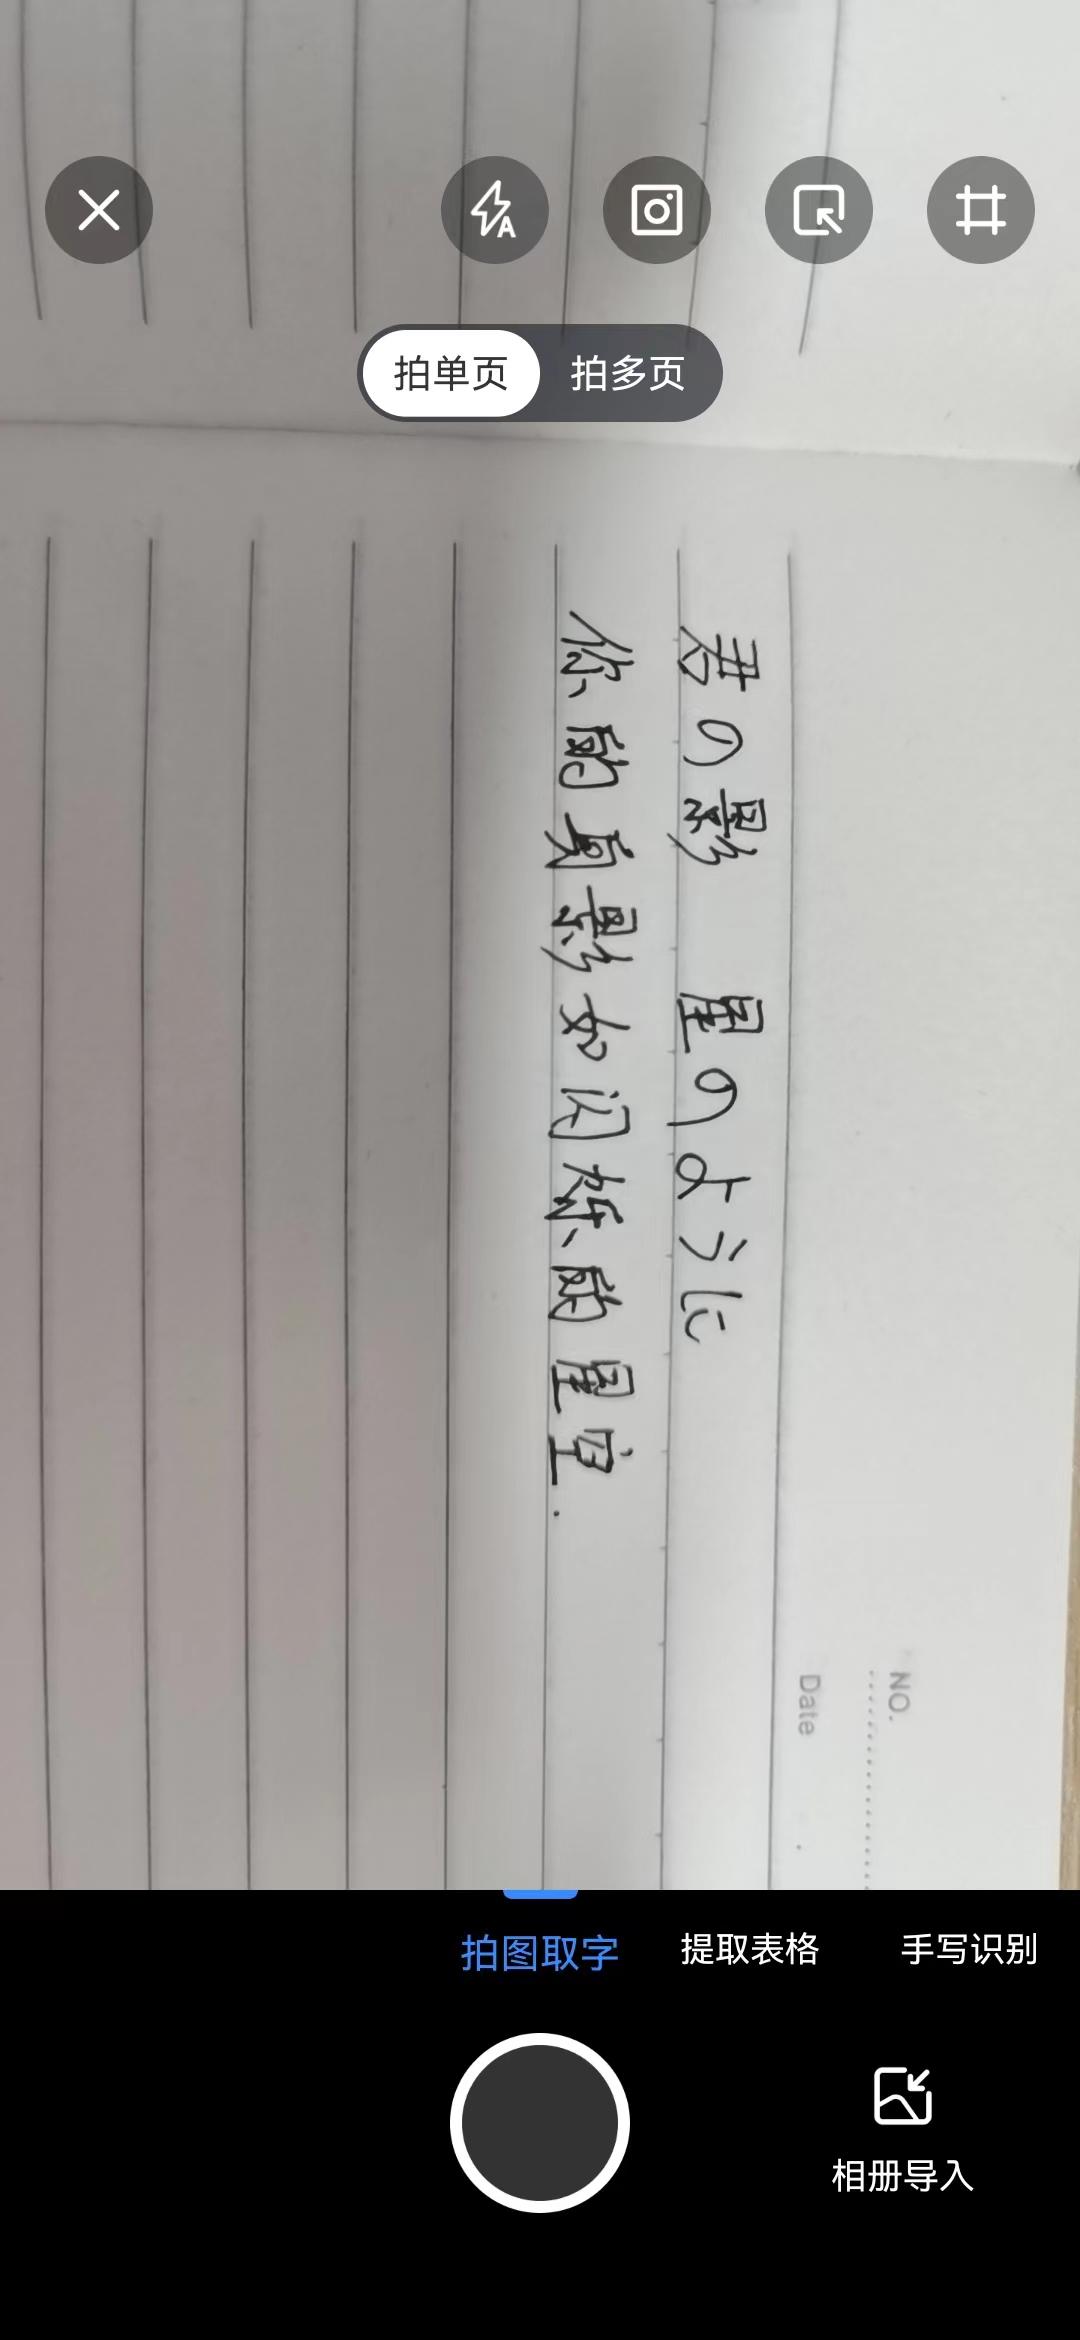 拍单页 拍多页
君の影 星のように
你的身影如闪烁的星
NO.
Date
拍图取字 提取表格 手写识别
相册导入